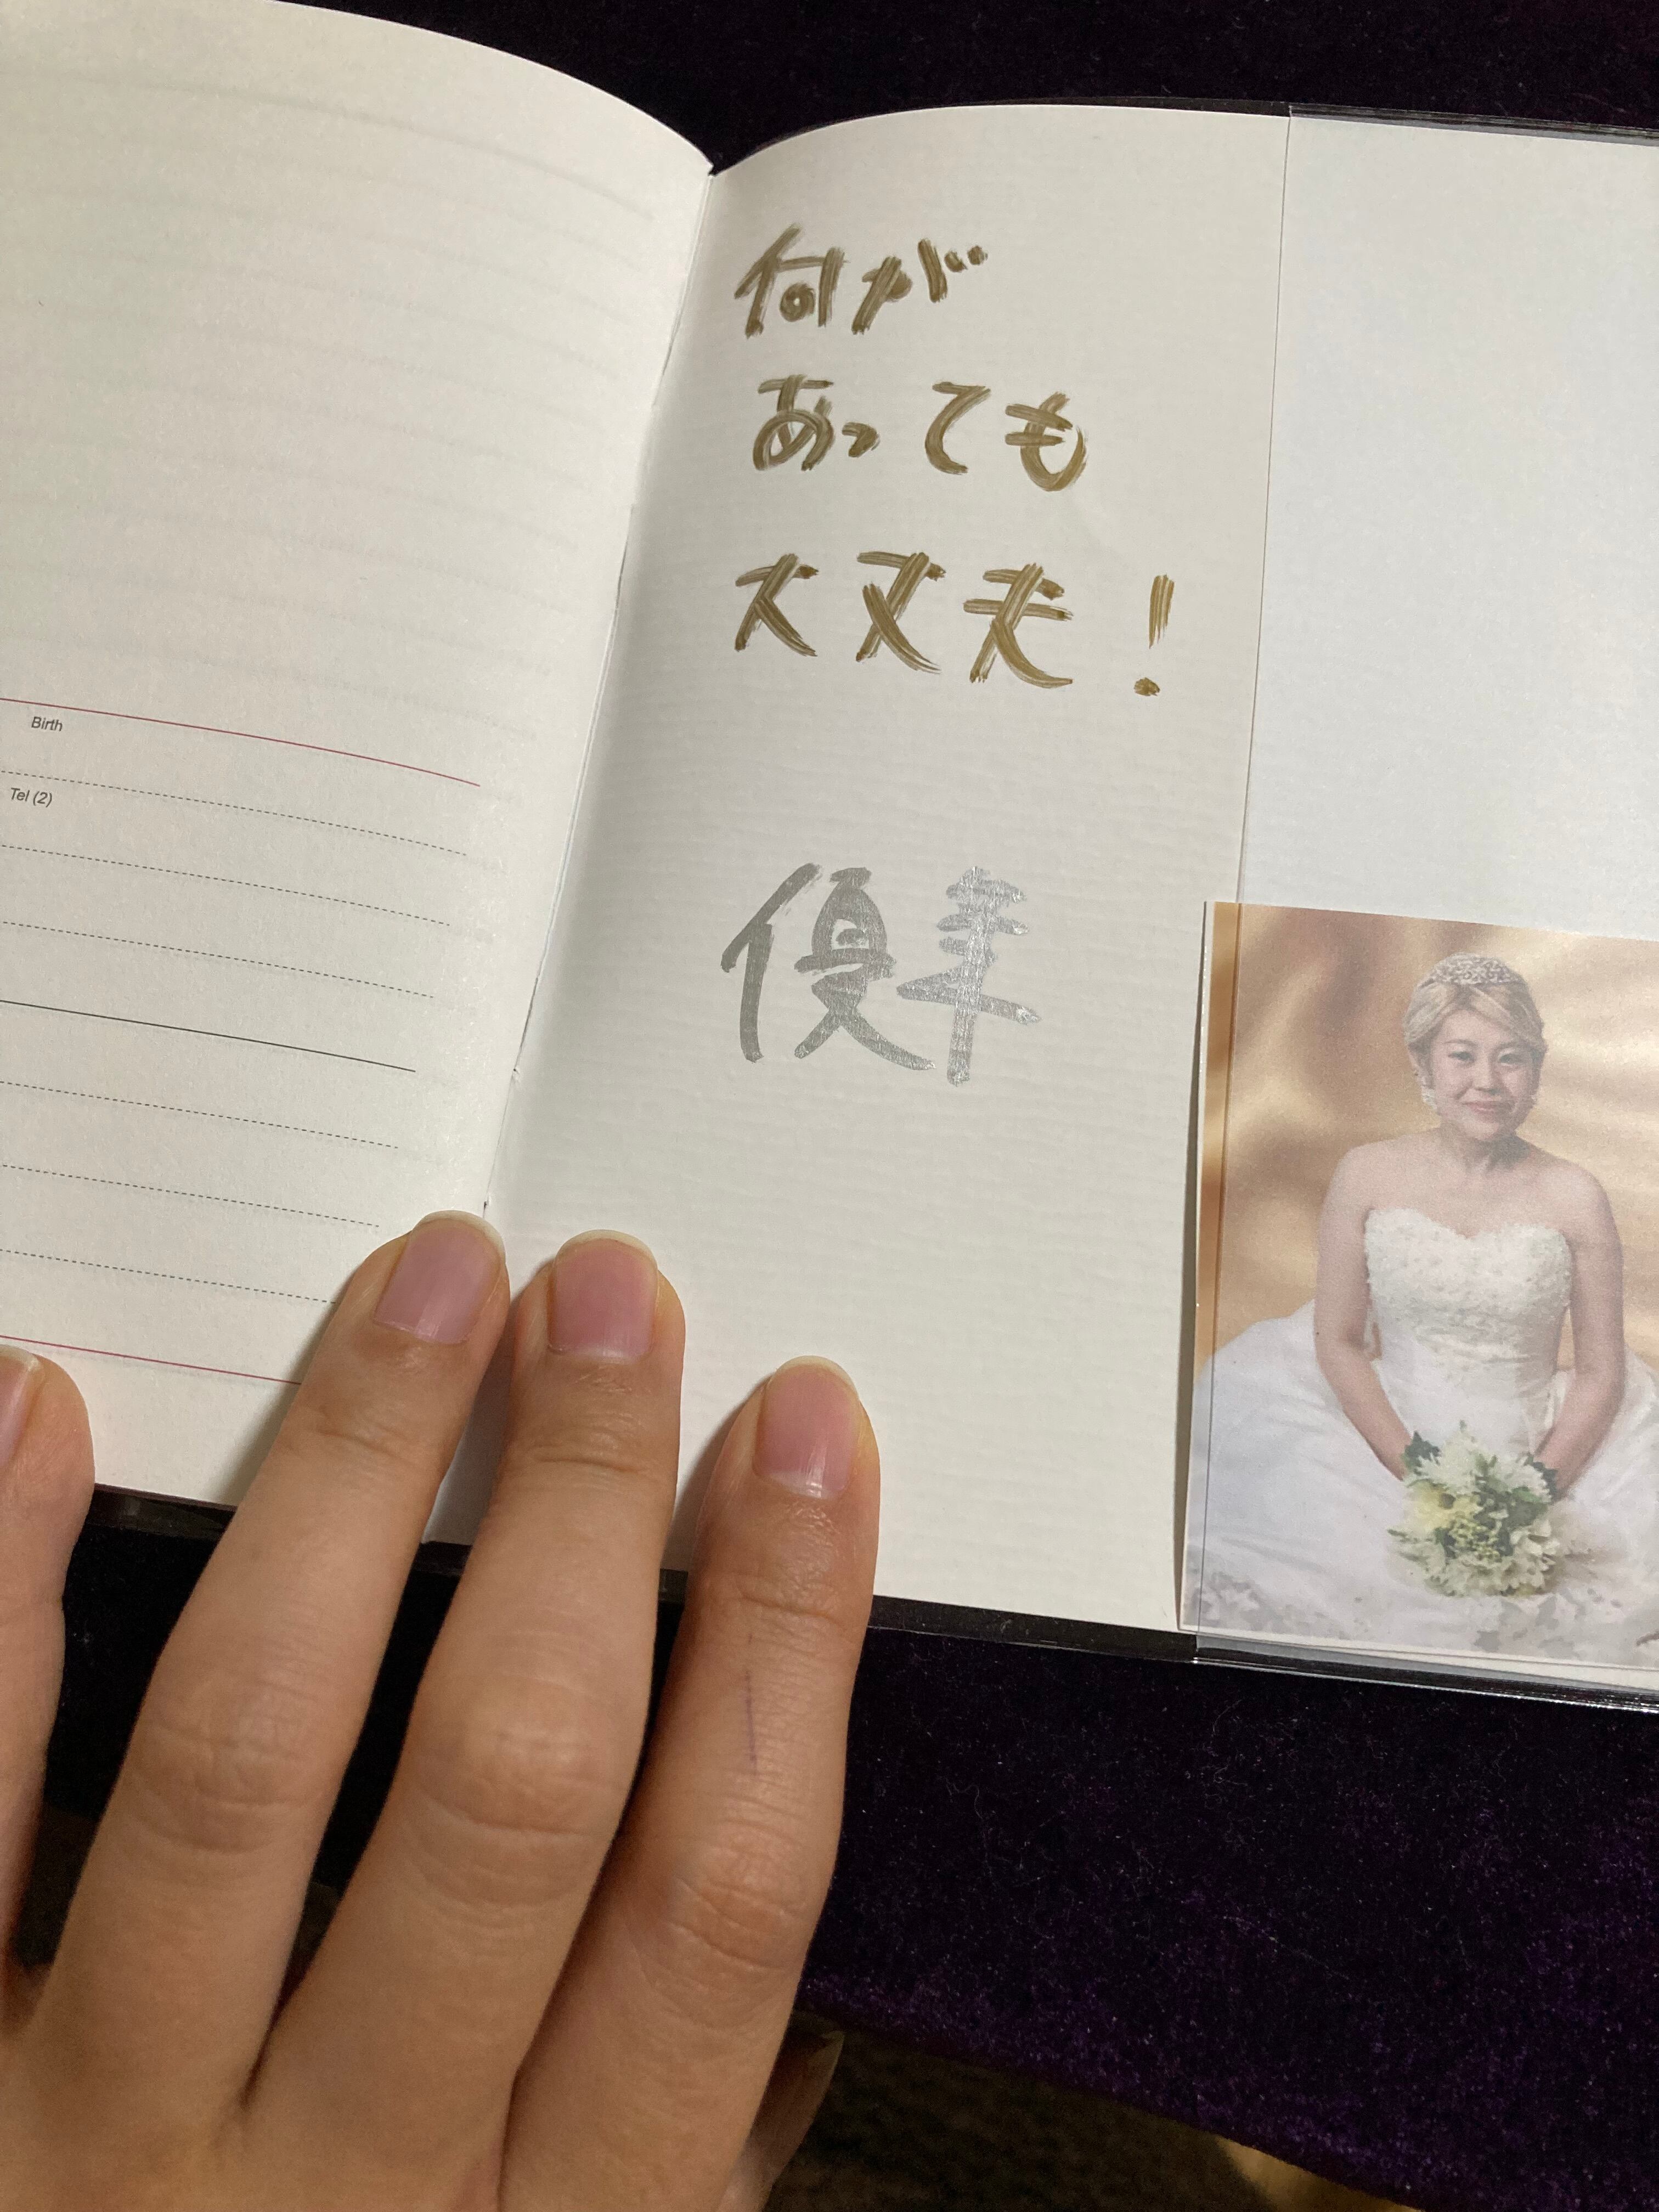 Birth
Tel (2)
何が
あっても
大丈夫!